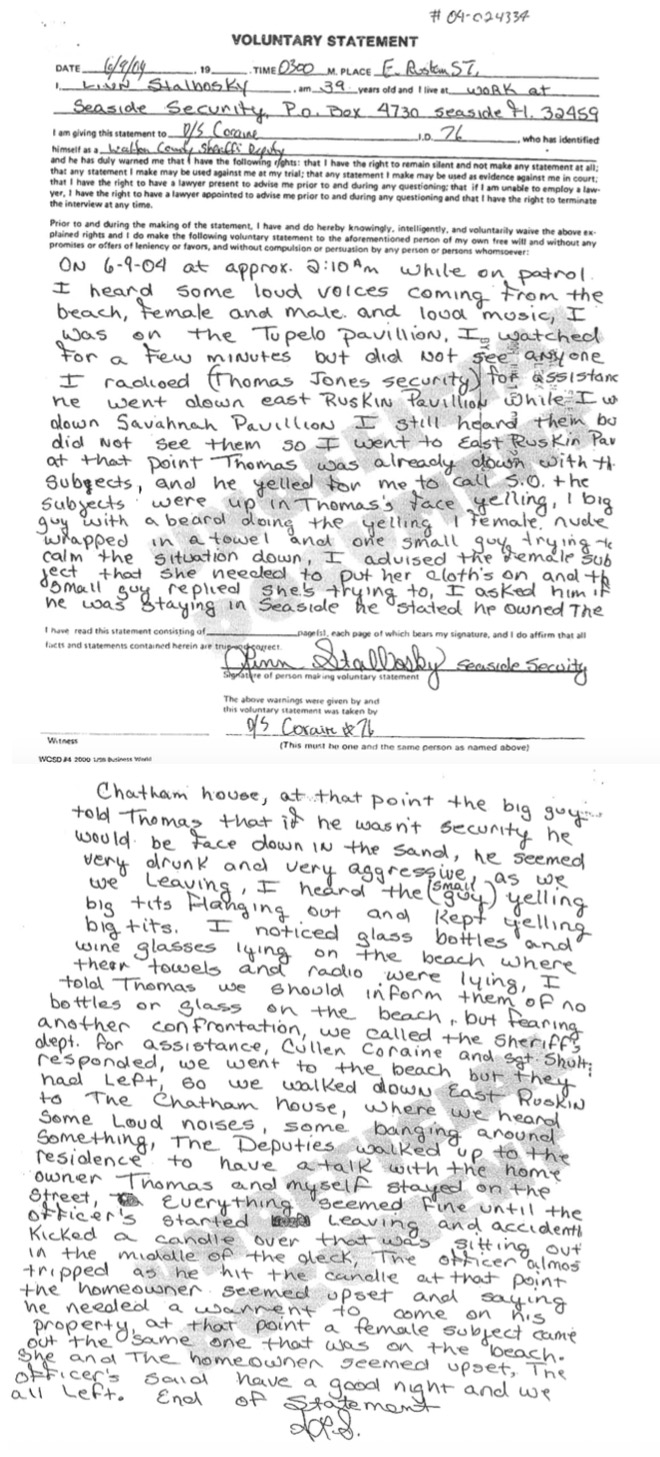 # 04-024334
VOLUNTARY STATEMENT
DATE 6/9/04 , 19 TIME 0300 M. PLACE E. Ruskin ST,
I, LINN Stalbosky , am 39 years old and I live at work at
Seaside Security, P.O. Box 4730 seaside fl. 32459
I am giving this statement to D/S Coraine I.D. 76 , who has identified
himself as a Walton County Sheriff Deputy
and he has duly warned me that I have the following rights: that I have the right to remain silent and not make any statement at all;
that any statement I make may be used against me at my trial; that any statement I make may be used as evidence against me in court;
that I have the right to have a lawyer present to advise me prior to and during any questioning; that if I am unable to employ a law-
yer, I have the right to have a lawyer appointed to advise me prior to and during any questioning and that I have the right to terminate
the interview at any time.
Prior to and during the making of the statement, I have and do hereby knowingly, intelligently, and voluntarily waive the above ex-
plained rights and I do make the following voluntary statement to the aforementioned person of my own free will and without any
promises or offers of leniency or favors, and without compulsion or persuation by any person or persons whomsoever:
ON 6-9-04 at approx. 2:10 Am while on patrol.
I heard some loud voices coming from the
beach, female and male. and loud music, I
was on the Tupelo pavillion, I watched
for a few minutes but did not see anyone
I radioed (Thomas Jones security) for assistanc
he went down east Ruskin Pavillion while I w
down Savahnah Pavillion I still heard them bu
did Not see them so I went to East Ruskin Pav
at that point Thomas was already down with th
Subjects, and he yelled for me to call S.O. the
subjects were up in Thomas's face yelling, 1 big
guy with a beard doing the yelling 1 female nude
wrapped in a towel and one small guy trying to
calm the situation down, I advised the female sub
ject that she needed to put her cloth's on, and th
small guy replied she's trying to, I asked him if
he was staying in Seaside he stated he owned The
I have read this statement consisting of page(s), each page of which bears my signature, and I do affirm that all
facts and statements contained herein are true and correct.
Linn Stalbosky seaside Security
Signature of person making voluntary statement
The above warnings were given by and
this voluntary statement was taken by
D/S Coraine # 76
Witness
(This must be one and the same person as named above)
WCSD #4 2000 1/98 Business World
Chatham house, at that point the big guy
told Thomas that if he wasn't security he
would be face down in the sand, he seemed
very drunk and very aggressive, as we
we Leaving, I heard the (small guy) yelling
big tits Hanging out and kept yelling
big tits. I noticed glass bottles and
wine glasses lying on the beach where
their towels and radio were lying, I
told Thomas we should inform them of no
bottles or glass on the beach, but fearing
another confrontation, we called the Sheriff's
dept. for assistance, Cullen Coraine and sgt. Shult
responded, we went to the beach but they
had Left, so we walked down East Ruskin
to The Chatham house, where we heard
some Loud noises, some banging around
something, The Deputies walked up to the
residence to have a talk with the home
owner Thomas and myself stayed on the
street, Everything seemed fine until the
officer's started Leaving and accidentl
Kicked a candle over that was sitting out
in the middle of the deck, The officer almos
tripped as he hit the candle at that point
the homeowner seemed upset and saying
he needed a warrent to come on his
property, at that point a female subject came
out the same one that was on the beach.
She and The homeowner seemed upset, The
officer's said have a good night and we
all Left. End of Statement